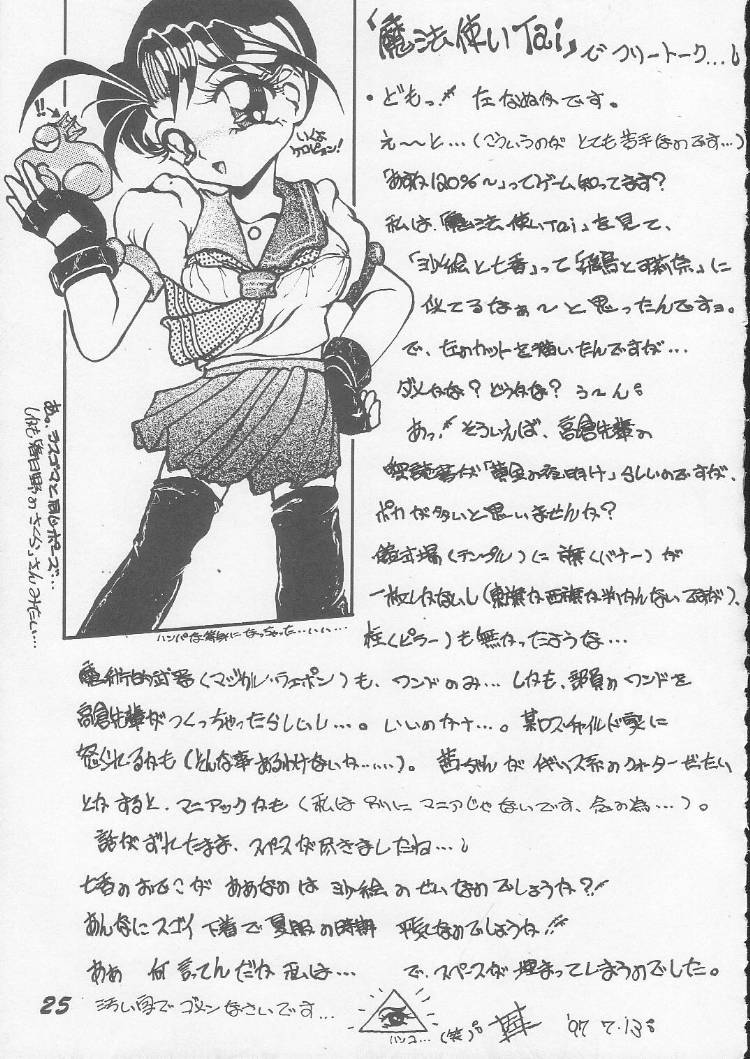 「魔法使いTai」で フリートーク…。
・どもっ!! 左なぬかです。
え〜と…(こういうのが とても苦手なのです…)
「あすか120%〜」ってゲーム知ってます?
私は「魔法使いTai」を見て、
「沙絵と七香」って「飛鳥と可莉奈」に
似てるなぁ〜と思ったんですョ。
で、左のカットを描いたんですが…
ダメかな? どうかな? う〜ん。
あっ!! そういえば、高倉先輩の
解読書が「黄金の夜明け」らしいのですが、
ポカが多いと思いませんか?
儀式場(テンプル)に旗(バナー)が
一枚しかないし(東旗か西旗か判かんないですが)、
柱(ピラー)も無かったような…
魔術的武器(マジカル・ウェポン)も、ワンドのみ… しかも、部員のワンドを
高倉先輩がつくっちゃったらしいし…。いいのかナ…。某ロスチャイルド家に
怒られるかも(そんな事あるわけないか……)。茜ちゃんがイギリス系のクォーターだったい
とかすると、マニアックかも(私は別にマニアじゃないです、念の為…)。
話がずれたまま、スペースが尽きましたね…。
七香のおでこが ああなのは沙絵のせいなのでしょうか?!
あんなにスゴイ下着で夏服の時期 平気なのでしょうか!!
ああ 何言ってんだか私は… で、スペースが埋まってしまうのでした。
汚い字でゴメンなさいです…
ハンコ…
(笑)。
'97 7.13。
25
!!
いくよ
ケロピョン!
あ。ラスゴマと同じポーズ…
しかも春日野のさくらさんみたい…
ハンパな等身になっちゃった……